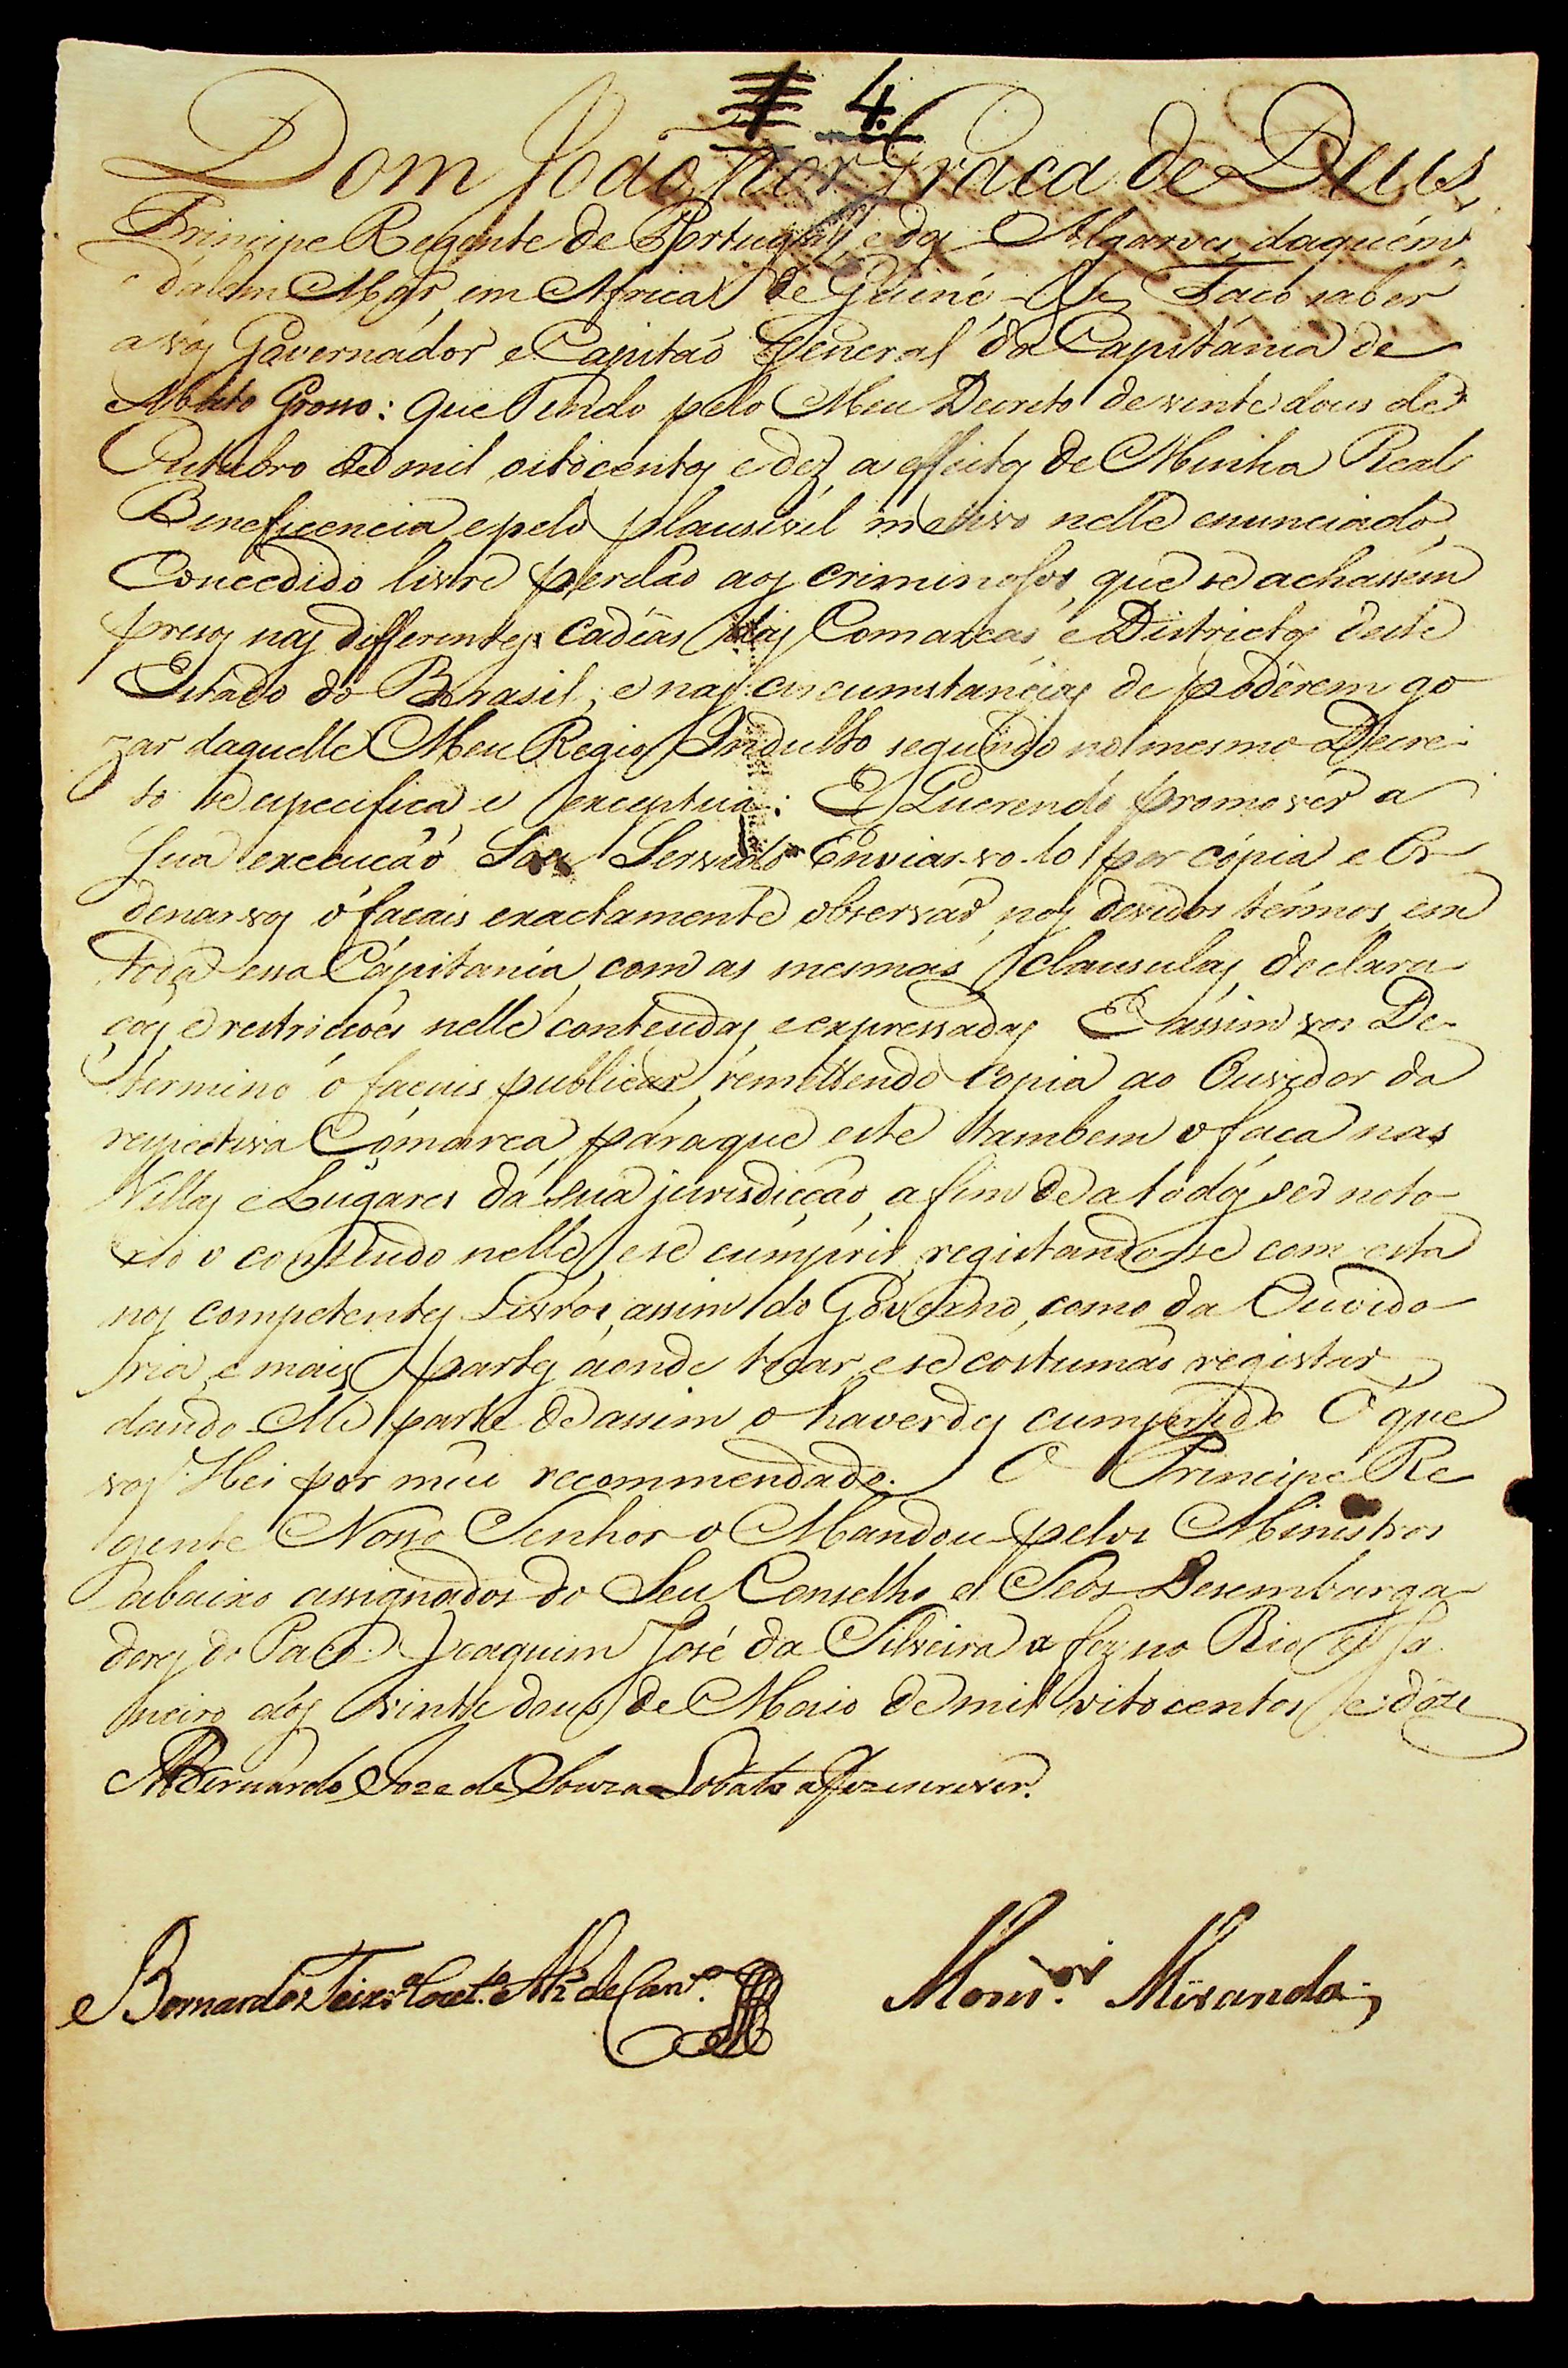 1 4.
Dom João por Graça de Deus,
Principe Regente de Portugal, e dos Algarves, daquém,
e dalem Mar, em Africa de Guiné, &c. Faço saber
a vós Governador e Capitaõ General da Capitánia de
Matto Grosso: Que Tendo pelo Meu Decreto de vinte dous de
Outubro de mil oitocentos e dez, a effeitos de Minha Real
Beneficencia, e pelo plausivel motivo nelle enunciado,
Concedido livre perdão aos criminosos, que se achassem
presos nas differentes cadêas das Comarcas e Districtos deste
Estado do Brasil, e nas circumstancias de podêrem go-
zar daquelle Meu Regio Indulto, segundo no mesmo Decre-
to se especifica e exceptua: E Querendo promover a
sua execuçaõ Sou Servido Enviar-vo-lo por cópia e Or-
denar vos o façais exactamente observar, nos devidos térmos, em
toda essa Capitania, com as mesmas clausulas, declara-
ções e restricções nelle contendas, e expressadas E assim vos De-
termino o façais publicar, remettendo Copia ao Ouvidor da
respectiva Comarca, para que este tambem o faça nas
Villas e Lugares da sua jurisdicção, a fim de a todos ser noto-
rio o conteudo nelle, e se cumprir, registando-se com esta
nos competentes Livros, assim do Governo, como da Ouvido-
ria, e mais partes aonde tocar, e se costumaõ registar,
dando-Me parte de assim o haverdes cumprido O que
vos Hei por mui recommendado. O Principe Re-
gente Nosso Senhor o Mandou pelos Ministros
abaixo assignados do Seu Conselho e Seos Desembarga-
dores do Paço. Joaquim José da Silveira a fez no Rio de Ja-
neiro aos vinte dous de Maio de mil oitocentos e doze
Bernardo Joze de Souza Lobato a fez escrever.
Bernardo Teixr.ª Cout.º Alz' de Carv.º Mons.or Miranda